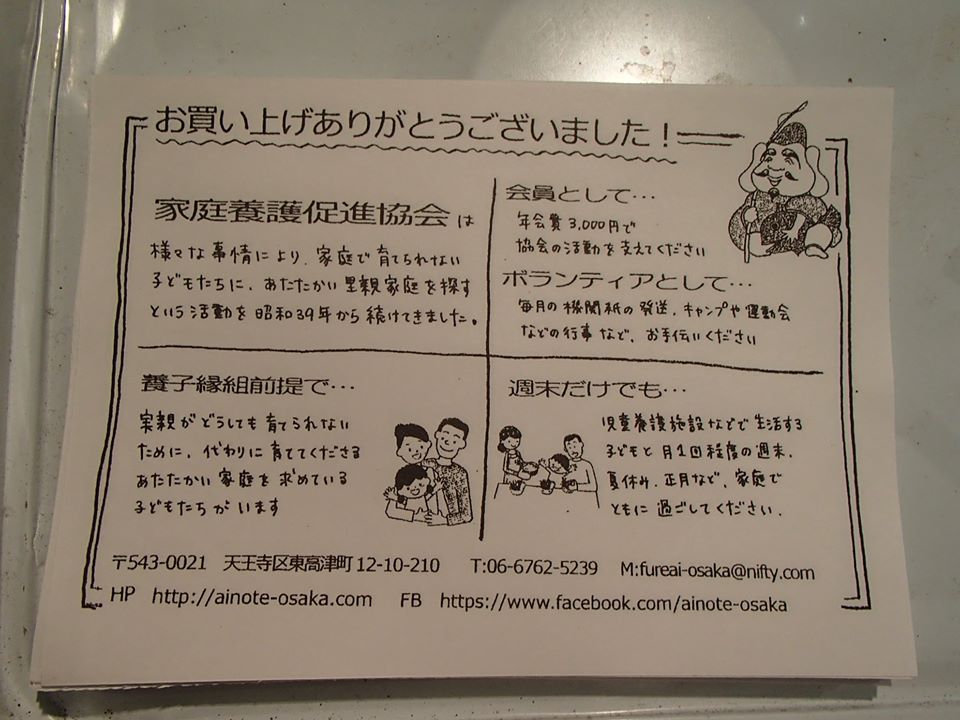 お買い上げありがとうございました！
家庭養護促進協会は
様々な事情により、家庭で育てられない
子どもたちに、あたたかい里親家庭を探す
という活動を昭和39年から続けてきました。
会員として…
年会費3,000円で
協会の活動を支えてください
ボランティアとして…
毎月の機関紙の発送、キャンプや運動会
などの行事など、お手伝いください
養子縁組前提で…
実親がどうしても育てられない
ために、代わりに育ててくださる
あたたかい家庭を求めている
子どもたちがいます
週末だけでも…
児童養護施設などで生活する
子どもと月1回程度の週末、
夏休み、正月など、家庭で
ともに過ごしてください.
〒543-0021 天王寺区東高津町12-10-210 T:06-6762-5239 M:fureai-osaka@nifty.com
HP http://ainote-osaka.com FB https://www.facebook.com/ainote-osaka